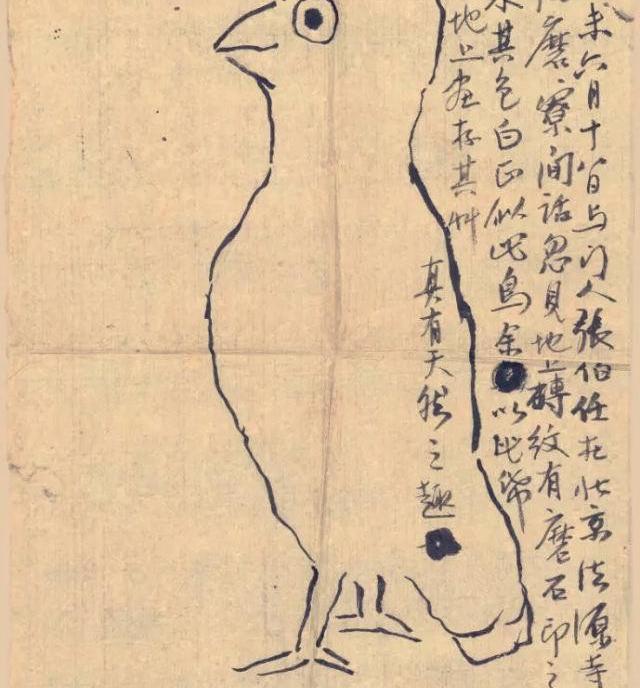 未六月十八日与门人張伯任在北京法源寺
磨寮间話忽見地上磚紋有磨石印之
其色白正似此鳥余以此帋
地上画存其艸
真有天然之趣